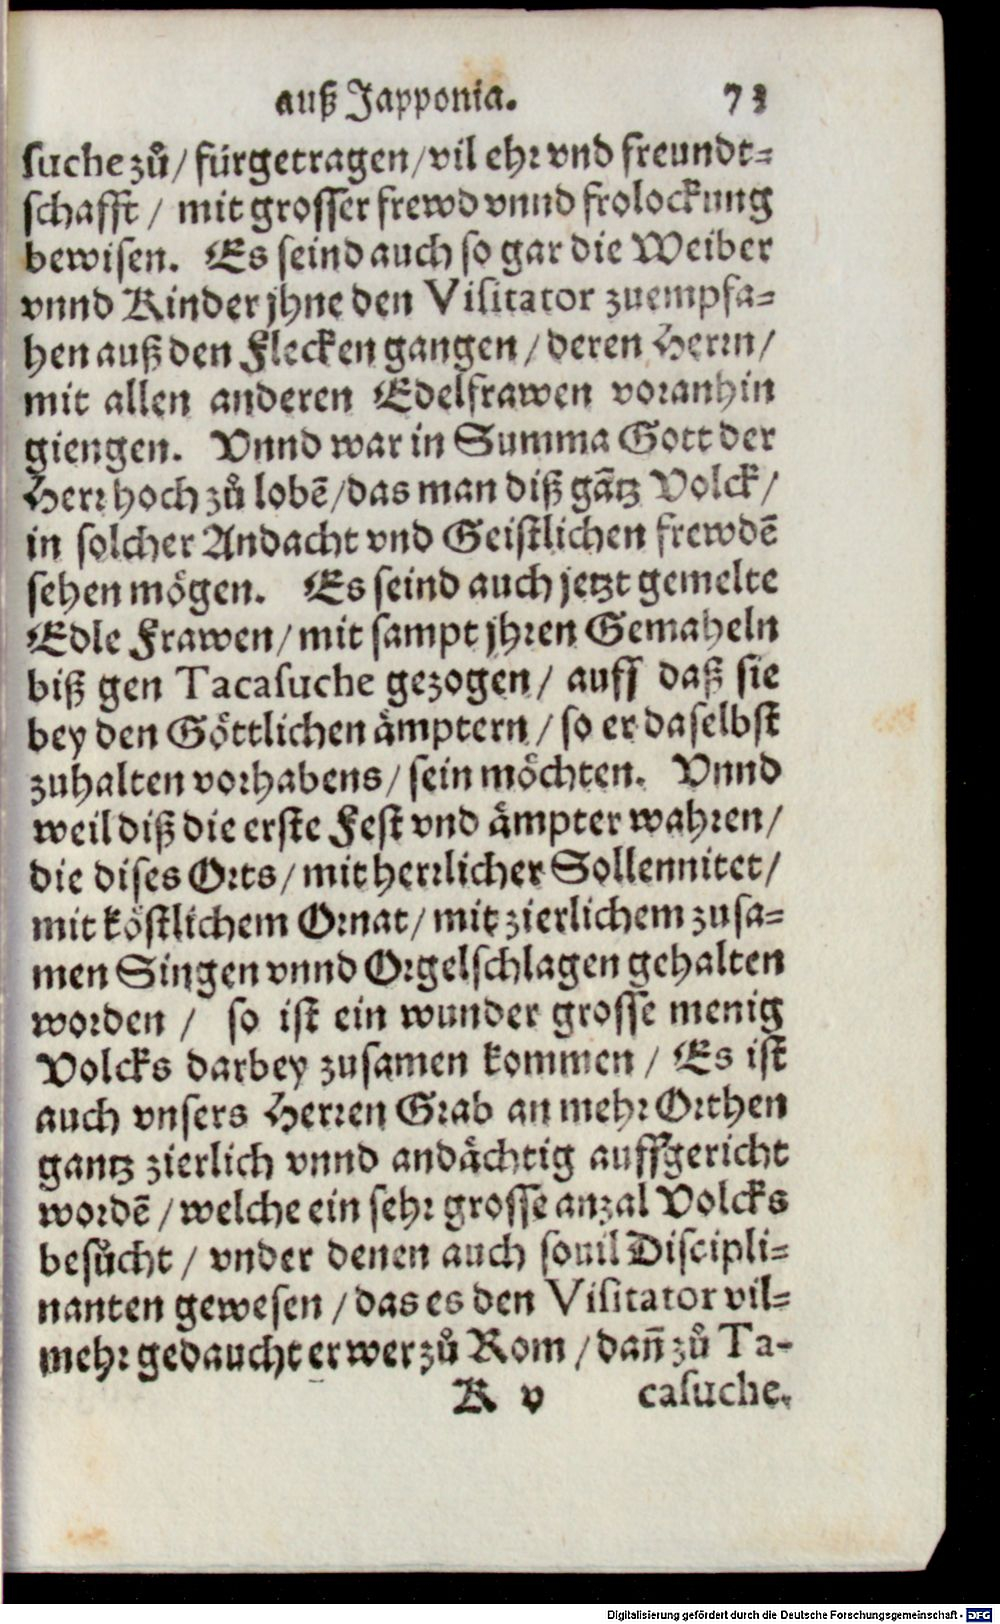 auß Japponia. 73
suche zů / fürgetragen / vil ehr vnd freundt=
schafft / mit grosser frewd vnnd frolockung
bewisen. Es seind auch so gar die Weiber
vnnd Kinder jhne den Visitator zuempfa=
hen auß den Flecken gangen / deren Herrn /
mit allen anderen Edelfrawen voranhin
giengen. Vnnd war in Summa Gott der
Herr hoch zů lobē / das man diß gātz Volck /
in solcher Andacht vnd Geistlichen frewdē
sehen mögen. Es seind auch jetzt gemelte
Edle Frawen / mit sampt jhren Gemaheln
biß gen Tacasuche gezogen / auff daß sie
bey den Göttlichen ämptern / so er daselbst
zuhalten vorhabens / sein möchten. Vnnd
weil diß die erste Fest vnd ämpter wahren /
die dises Orts / mit herrlicher Sollennitet /
mit köstlichem Ornat / mit zierlichem zusa=
men Singen vnnd Orgelschlagen gehalten
worden / so ist ein wunder grosse menig
Volcks darbey zusamen kommen / Es ist
auch vnsers Herren Grab an mehr Orthen
gantz zierlich vnnd andächtig auffgericht
wordē / welche ein sehr grosse anzal Volcks
besůcht / vnder denen auch souil Discipli=
nanten gewesen / das es den Visitator vil=
mehr gedaucht er wer zů Rom / dañ zů Ta-
K v casuche.
Digitalisierung gefördert durch die Deutsche Forschungsgemeinschaft - DFG